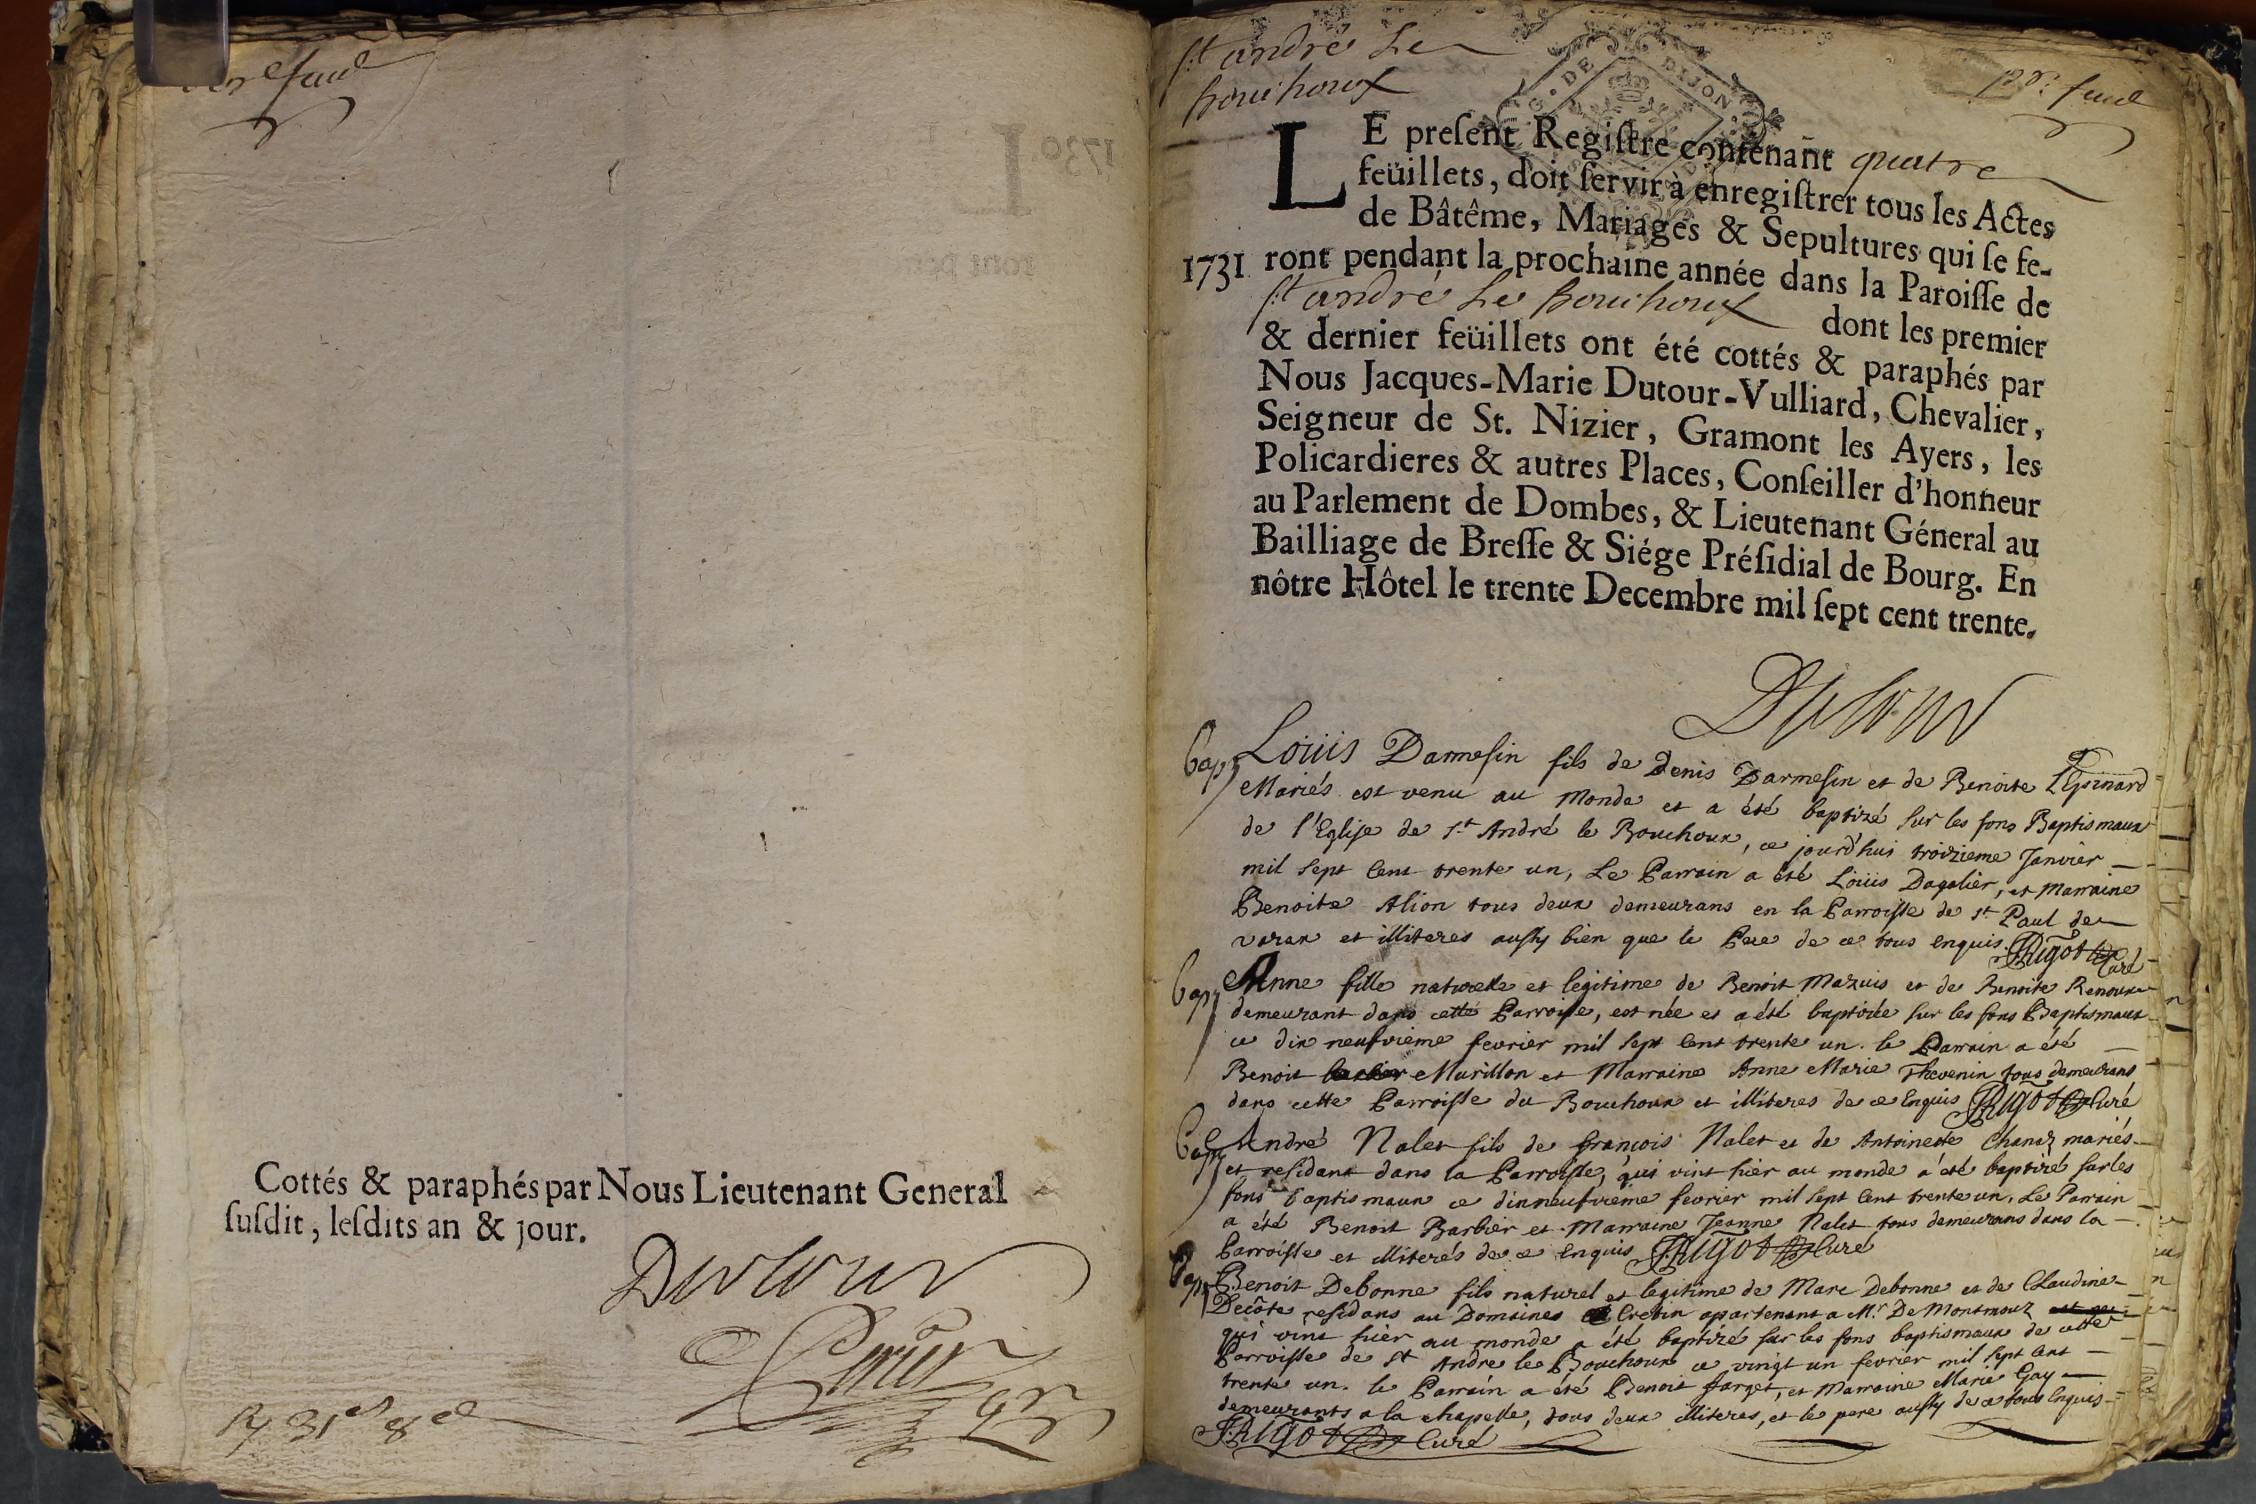 feuil
Cottés & paraphés par Nous Lieutenant General
ſuſdit, leſdits an & jour.
Dutour
St andré Le
bouchoux
pr. feuil
G. DE DIJON
LE preſent Regiſtre contenant quatre
feüillets, doit ſervir à enregiſtrer tous les Actes
de Bâtême, Mariages & Sepultures qui ſe fe-
1731 ront pendant la prochaine année dans la Paroiſſe de
St andré Le bouchoux dont les premier
& dernier feüillets ont été cottés & paraphés par
Nous Jacques-Marie Dutour-Vulliard, Chevalier,
Seigneur de St. Nizier, Gramont les Ayers, les
Policardieres & autres Places, Conſeiller d'honneur
au Parlement de Dombes, & Lieutenant Géneral au
Bailliage de Breſſe & Siége Préſidial de Bourg. En
nôtre Hôtel le trente Decembre mil ſept cent trente.
Dutour
Bap. Loüis Darmesin fils de Denis Darmesin et de Benoite L'Epinard
Mariés est venu au Monde et a été baptizé sur les fons Baptismaux
de l'Eglise de st André le Bouchoux, ce jourd'hui troizieme Janvier
mil sept Cent trente un, Le Parrain a été Loüis Dagalier, et Marraine
Benoite Alion tous deux demeurans en la Parroisse de st Paul de
varax et illiteres aussy bien que le Pere de ce tous enquis. Rigot Curé
Bap. Anne fille naturelle et legitime de Benoit Mazuis et de Benoite Renoux
demeurant dans cette Parroisse, est née et a été baptizée sur les fons Baptismaux
ce dix neufvieme fevrier mil sept Cent trente un. le Parrain a été
Benoit Murillon et Marraine Anne Marie Thevenin tous demeurans
dans cette Parroisse du Bouchoux et illiteres de ce Enquis Rigot Curé
Bap. André Nalet fils de françois Nalet et de Antoinette Chanel mariés
et residans dans la Parroisse, qui vint hier au monde a été baptizé sur les
fons baptismaux ce dixneufvieme fevrier mil sept Cent trente un. Le Parrain
a été Benoit Barbier et Marraine Jeanne Nalet tous demeurans dans la
Parroisse et illiterés de ce enquis Rigot Curé
Bap. Benoit Debonne fils naturel et legitime de Marc Debonne et de Claudine
Decôte residans au Domaines Cretin appartenant a Mr De Montmouz
qui vint hier au monde a été baptizé sur les fons baptismaux de cette
Parroisse de St Andre le Bouchoux ce vingt un fevrier mil sept Cent
trente un. le Parrain a été Benoit farget, et Marraine Marie Gay
demeurants a la chapelle, tous deux illiteres, et le pere aussy de ce tous Enquis
Rigot Curé